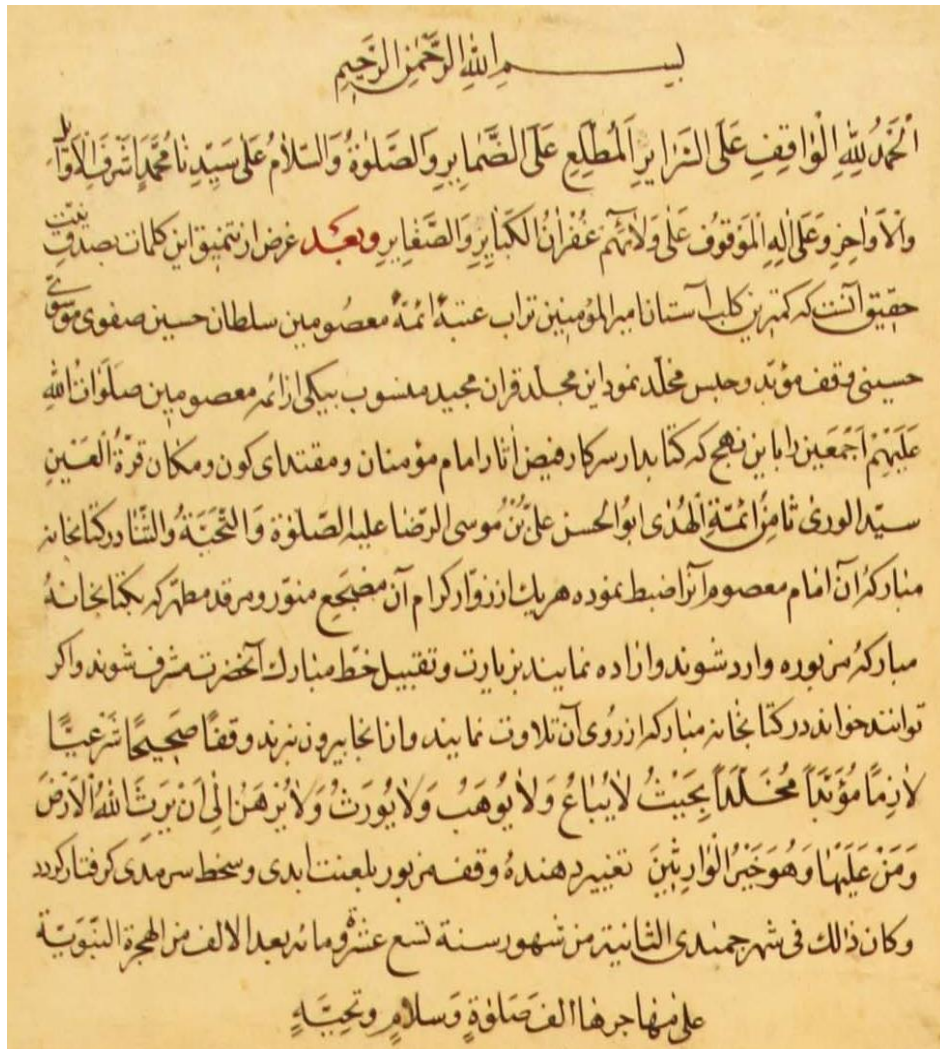 بسم الله الرحمن الرحیم
اَلْحَمْدُ لِلّٰهِ الْوٰاقِفِ عَلَی السَّرٰایِرِ اَلْمُطَّلِعِ عَلَی الضَّمٰایِرِ وَالصَّلوٰةُ وَالسَّلاٰمُ عَلیٰ سَیِّدِنٰا مُحَمَّدٍ اَشْرَفِ الْاَوٰایِلِ
وَالْاَوٰاخِرِ وَعَلیٰ اٰلِهِ الْمَوْقُوفِ عَلیٰ وَلاٰئِهِمْ غُفْرٰانُ الْکَبٰایِرِ وَالصَّغٰایِرِ وبعد غرض از تنمیق این کلمات بصدق نیت
حقیق آنست که کمترین کلب آستان امیر المؤمنین تراب عتبهٔ ائمهٔ معصومین سلطان حسین صفوی موسوی
حسینی وقف مؤبّد و حبس مخلّد نمود این مجلّد قران مجید منسوب بیکی از ائمه معصومین صلَوٰاتُ اللّٰهِ
عَلَیْهِمْ اَجْمَعین را باین نهج که کتابدار سرکار فیض اٰثار امام مؤمنان و مقتدای کون و مکان قرّةُ الْعَیْنِ
سیّد الوریٰ ثٰامِنُ ائمّةِ الْهُدیٰ ابو الحسن علیُّ بْنُ مُوسی الرّضا علیه الصّلوٰة وَالتّحیَّةُ وَالثّناء در کتابخانه
مبارکهٔ آن امام معصوم آنرا ضبط نموده هر یک از زوّار کرام آن مضجع منوّر و مرقد مطهّر که بکتابخانهٔ
مبارکهٔ مزبوره وارد شوند و اراده نمایند بزیارت و تقبیل خطّ مبارک آنحضرت مشرف شوند و اکر
توانند خواند در کتابخانه مبارکه از رُوی آن تلاوت نمایند و از انجا بیرون نبرند وقفاً صَحیحاً شَرْعیّاً
لاٰزِماً مُؤَبَّداً مُخَلَّداً بِحَیْثُ لاٰ یُبٰاعُ وَلاٰ یُوهَبُ وَلاٰ یُورَثُ وَلاٰ یُرْهَنُ اِلیٰ اَنْ یَرِثَ اللّٰهُ الْاَرْضَ
وَمَنْ عَلَیْهٰا وَهُوَ خَیْرُ الْوٰارِثِینَ تغییر دهندهٔ وقف مزبور بلعنت ابدی و سخط سرمدی کرفتار کردد
وکان ذٰلك فی شهر جمیدی الثّانیة من شهور سنة تسع عشرة ومائه بعد الالف من الهجرة النّبویّة
علیٰ مهاجرها الف صَلوٰةٍ وَسلاٰمٍ وتحیّةٍ